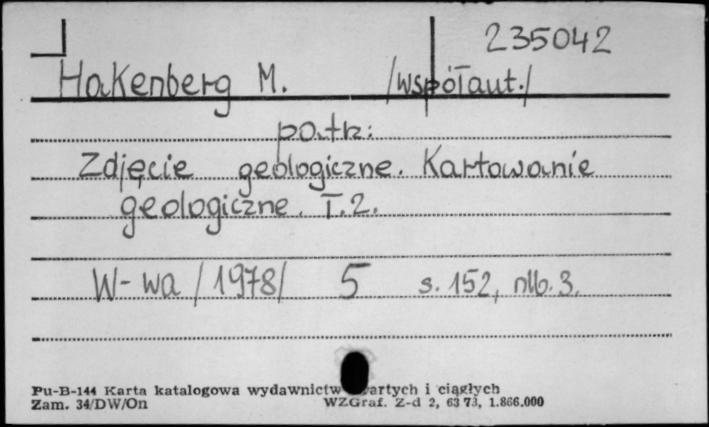 235042
Hakenberg M. /współaut./
patrz:
Zdjęcie geologiczne. Kartowanie
geologiczne. T.2.
W-wa /1978/ 5 s. 152, nlb. 3.
Pu-B-144 Karta katalogowa wydawnictw wartych i ciągłych
Zam. 34/DW/On WZGraf. Z-d 2, 63 73, 1.866.000